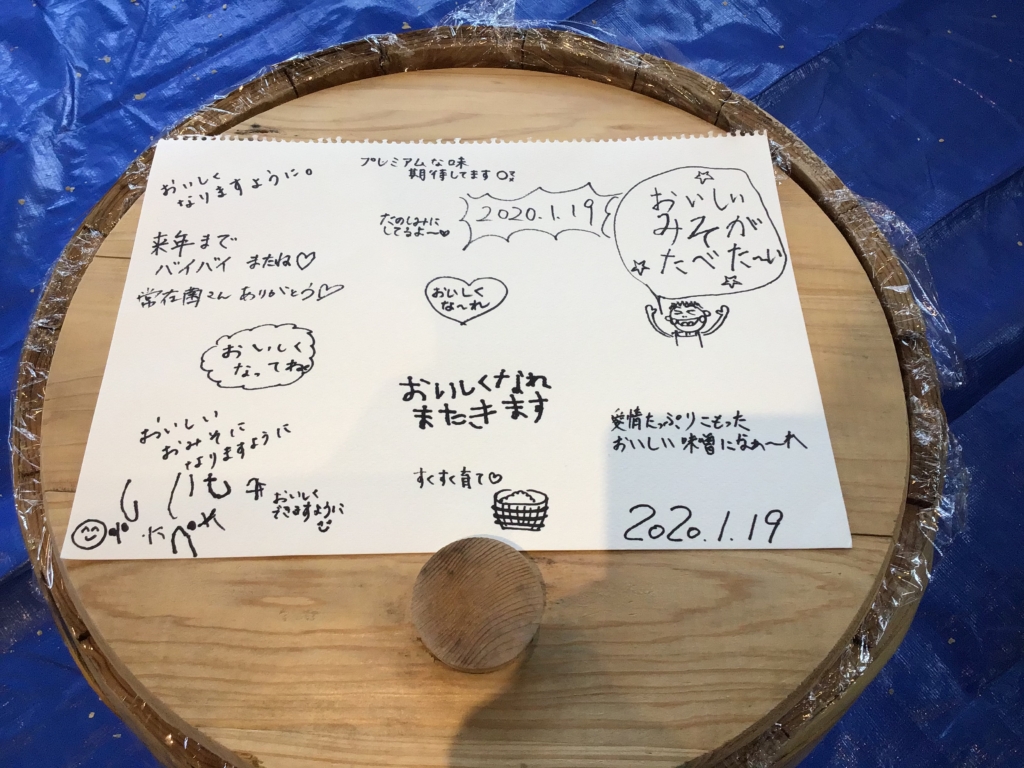 おいしく
なりますように。
プレミアムな味
期待してます
たのしみに
してるよ〜♡
2020.1.19
☆
おいしい
みそが
たべた〜い
☆
☆
来年まで
バイバイ またね♡
常在菌さん ありがとう♡
おいしく
な〜れ
おいしく
なってね
おいしくなれ
またきます
おいしい
おみそに
なりますように
愛情たっぷりこもった
おいしい味噌になぁ〜れ
すくすく育て♡
おいしく
できますように
2020.1.19